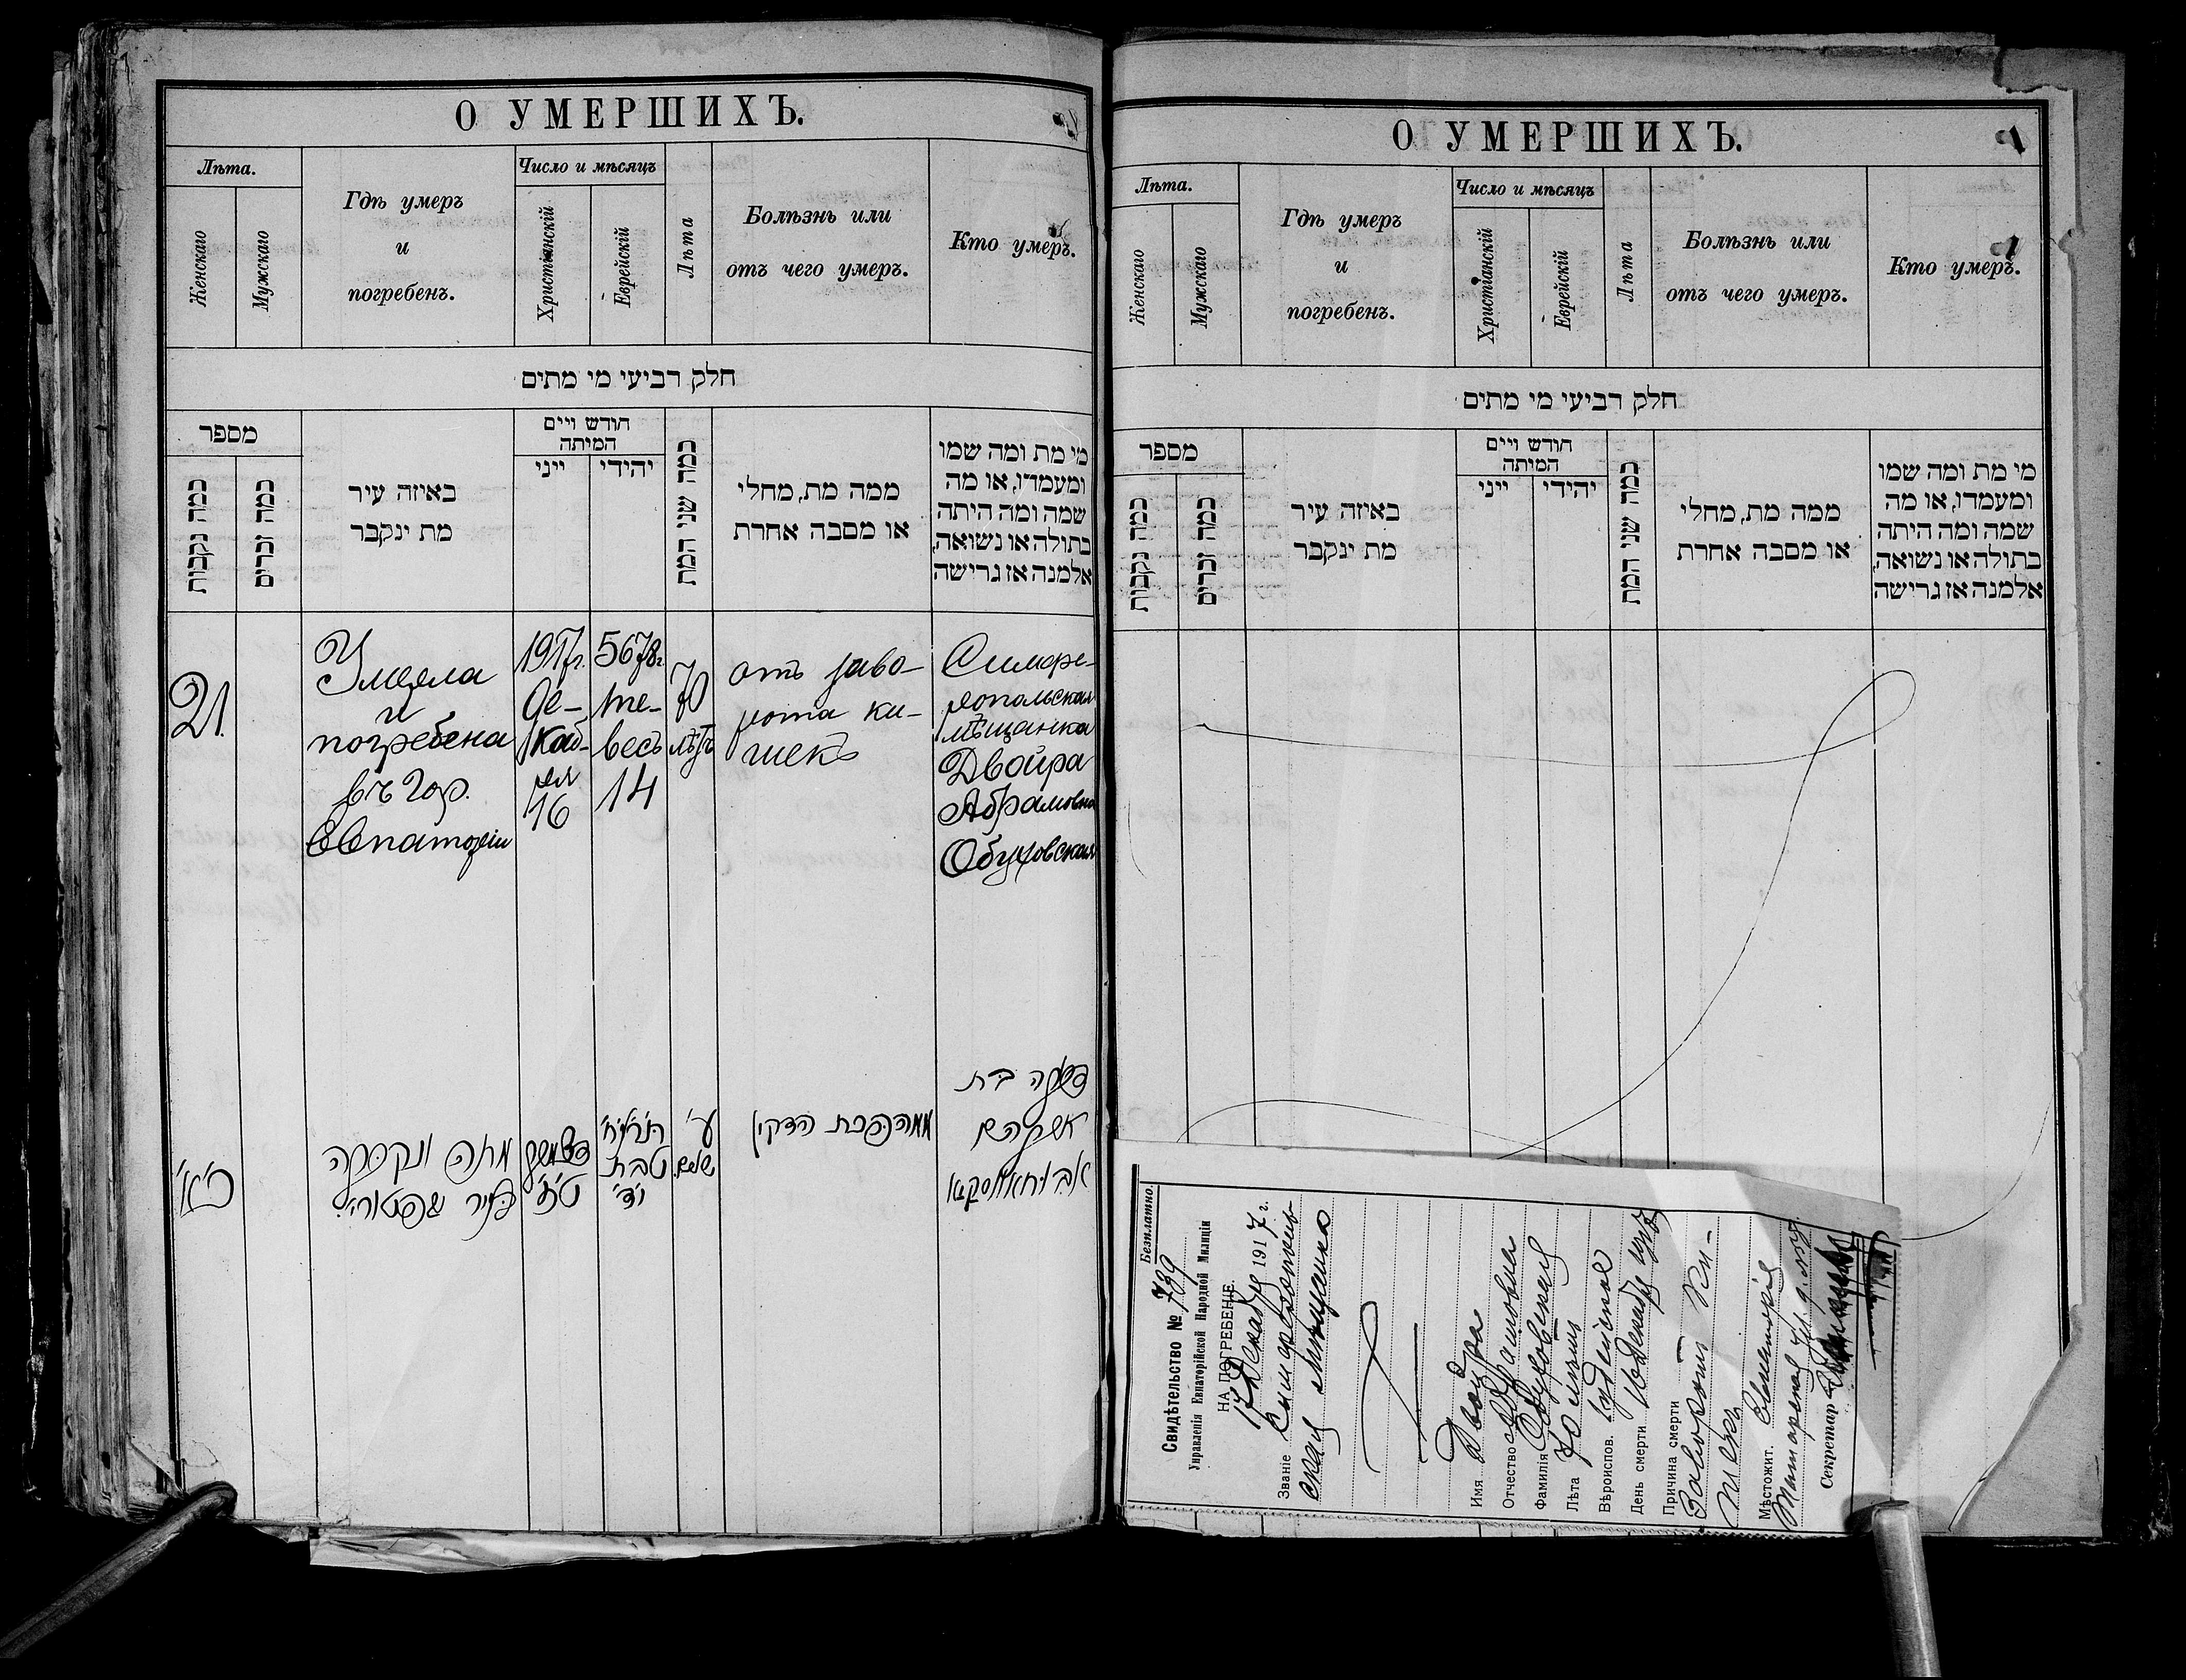 О УМЕРШИХЪ.
Лѣта.
Женскаго
Мужскаго
Гдѣ умеръ
и
погребенъ.
Число и мѣсяцъ
Христіанскій
Еврейскій
Лѣта
Болѣзнь или
отъ чего умеръ.
Кто умеръ.
חלק רביעי מי מתים
מספר
כמה נקבות
כמה זכרים
באיזה עיר
מת ינקבר
חודש ויים
המיתה
ייני
יהידי
כמה שני המת
ממה מת, מחלי
או מסבה אחרת
מי מת ומה שמו
ומעמדו, או מה
שמה ומה היתה
בתולה או נשואה,
אלמנה אז גרישה
21.
Умерла
и
погребена
въ гор.
Евпаторіи
1917г.
де-
каб-
ря
16
5678г.
те-
весъ
14
70
лѣтъ
отъ заво-
рота ки-
шекъ
Симфе-
ропольская
мѣщанка
Двойра
Абрамовна
Обуховская
כ״א
מתה ונקברה
טבת
י״ד
ע׳
הדקין
בת
אברהם
О УМЕРШИХЪ.
Лѣта.
Женскаго
Мужскаго
Гдѣ умеръ
и
погребенъ.
Число и мѣсяцъ
Христіанскій
Еврейскій
Лѣта
Болѣзнь или
отъ чего умеръ.
Кто умеръ.
חלק רביעי מי מתים
מספר
כמה נקבות
כמה זכרים
באיזה עיר
מת ינקבר
חודש ויים
המיתה
ייני
יהידי
כמה שני המת
ממה מת, מחלי
או מסבה אחרת
מי מת ומה שמו
ומעמדו, או מה
שמה ומה היתה
בתולה או נשואה,
אלמנה אז גרישה
Безплатно.
Свидѣтельство № 739
Управленія Евпаторійской Народной Милиціи
НА ПОГРЕБЕНІЕ.
17 Декабря 1917 г.
Званіе Симферополь-
ская мѣщанка
Имя Двойра
Отчество Абрамовна
Фамилія Обуховская
Лѣта 70 лѣтъ
Вѣроиспов. Іудейское
День смерти 16 Декабря 1917
Причина смерти
Заворотъ ки-
шекъ
Мѣстожит. Евпаторія
Секретар